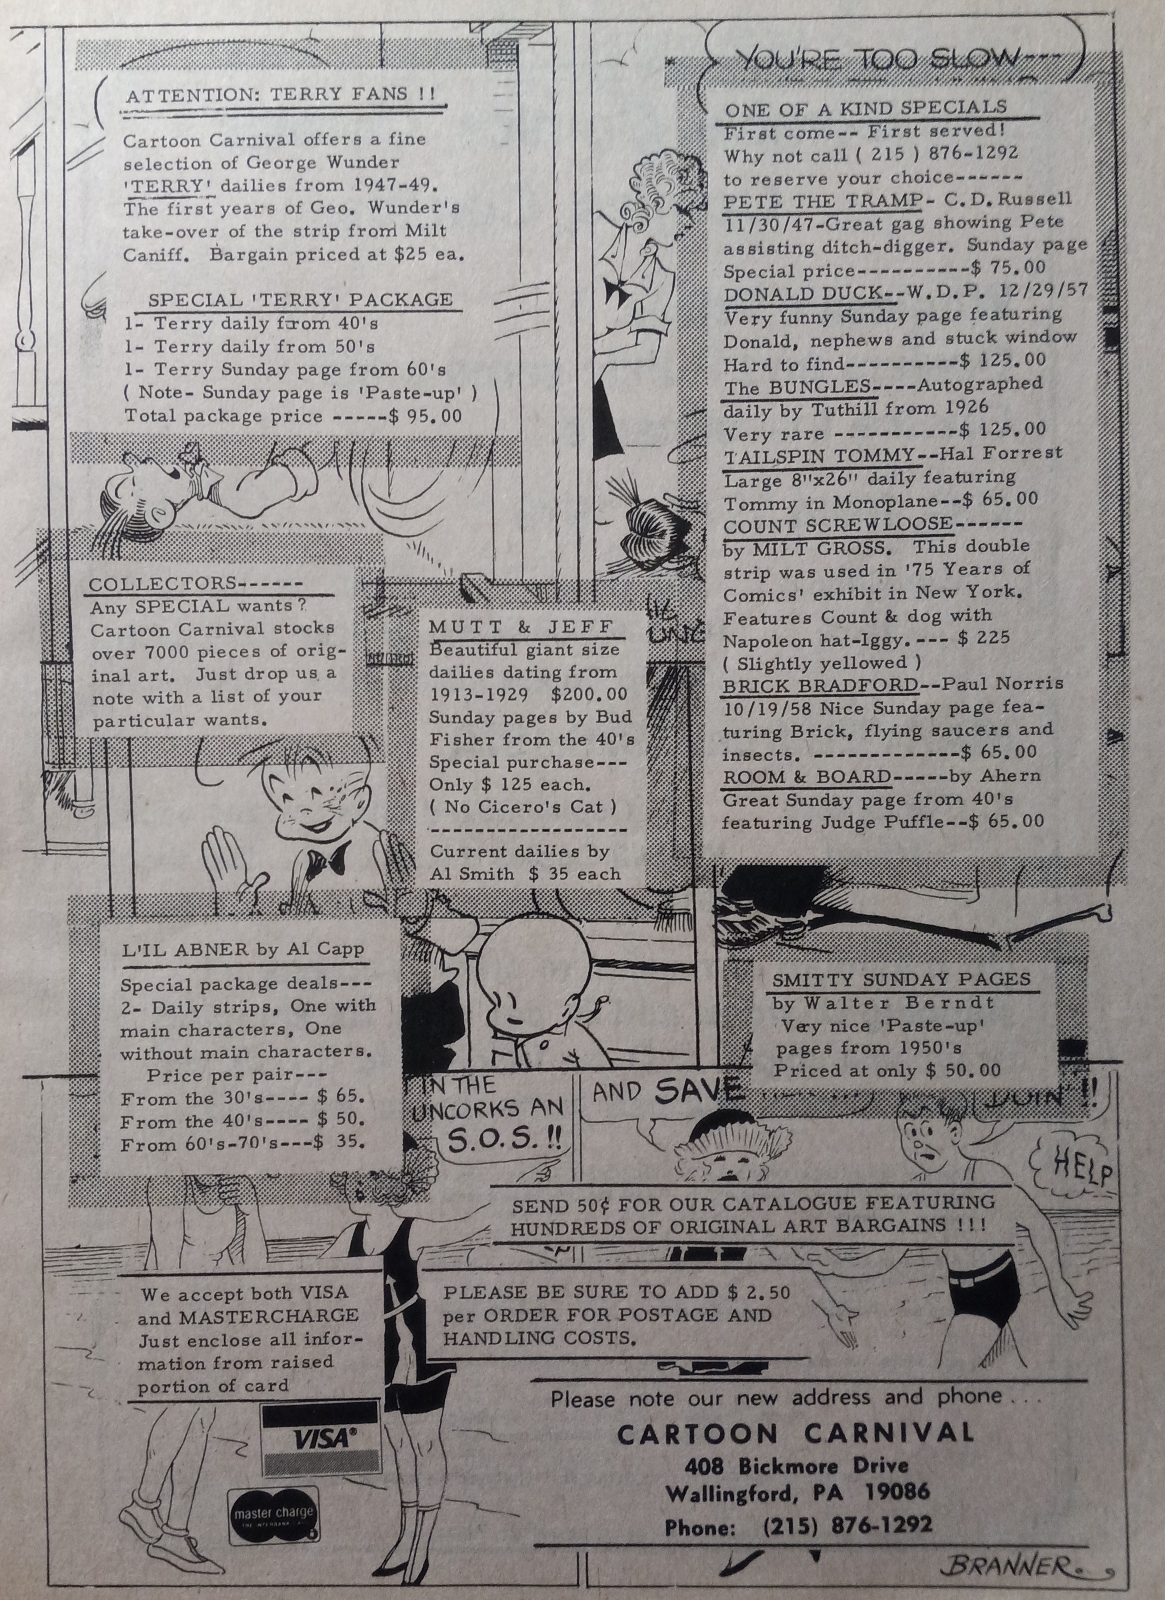 YOU'RE TOO SLOW---
ATTENTION: TERRY FANS !!
Cartoon Carnival offers a fine
selection of George Wunder
'TERRY' dailies from 1947-49.
The first years of Geo. Wunder's
take-over of the strip from Milt
Caniff. Bargain priced at $25 ea.
SPECIAL 'TERRY' PACKAGE
1- Terry daily from 40's
1- Terry daily from 50's
1- Terry Sunday page from 60's
( Note- Sunday page is 'Paste-up' )
Total package price -----$ 95.00
ONE OF A KIND SPECIALS
First come-- First served!
Why not call ( 215 ) 876-1292
to reserve your choice------
PETE THE TRAMP- C.D. Russell
11/30/47-Great gag showing Pete
assisting ditch-digger. Sunday page
Special price----------$ 75.00
DONALD DUCK--W.D.P. 12/29/57
Very funny Sunday page featuring
Donald, nephews and stuck window
Hard to find----------$ 125.00
The BUNGLES----Autographed
daily by Tuthill from 1926
Very rare -----------$ 125.00
TAILSPIN TOMMY--Hal Forrest
Large 8"x26" daily featuring
Tommy in Monoplane--$ 65.00
COUNT SCREWLOOSE------
by MILT GROSS. This double
strip was used in '75 Years of
Comics' exhibit in New York.
Features Count & dog with
Napoleon hat-Iggy. --- $ 225
( Slightly yellowed )
BRICK BRADFORD--Paul Norris
10/19/58 Nice Sunday page fea-
turing Brick, flying saucers and
insects. -------------$ 65.00
ROOM & BOARD-----by Ahern
Great Sunday page from 40's
featuring Judge Puffle--$ 65.00
COLLECTORS------
Any SPECIAL wants ?
Cartoon Carnival stocks
over 7000 pieces of orig-
inal art. Just drop us a
note with a list of your
particular wants.
MUTT & JEFF
Beautiful giant size
dailies dating from
1913-1929 $200.00
Sunday pages by Bud
Fisher from the 40's
Special purchase---
Only $ 125 each.
( No Cicero's Cat )
------------------
Current dailies by
Al Smith $ 35 each
L'IL ABNER by Al Capp
Special package deals---
2- Daily strips, One with
main characters, One
without main characters.
Price per pair---
From the 30's---- $ 65.
From the 40's---- $ 50.
From 60's-70's---$ 35.
SMITTY SUNDAY PAGES
by Walter Berndt
Very nice 'Paste-up'
pages from 1950's
Priced at only $ 50.00
IN THE
UNCORKS AN
S.O.S. !!
AND SAVE
DOIN' !!
HELP
SEND 50¢ FOR OUR CATALOGUE FEATURING
HUNDREDS OF ORIGINAL ART BARGAINS !!!
We accept both VISA
and MASTERCHARGE
Just enclose all infor-
mation from raised
portion of card
PLEASE BE SURE TO ADD $ 2.50
per ORDER FOR POSTAGE AND
HANDLING COSTS.
VISA®
master charge
THE INTERBANK
Please note our new address and phone . . .
CARTOON CARNIVAL
408 Bickmore Drive
Wallingford, PA 19086
Phone: (215) 876-1292
BRANNER